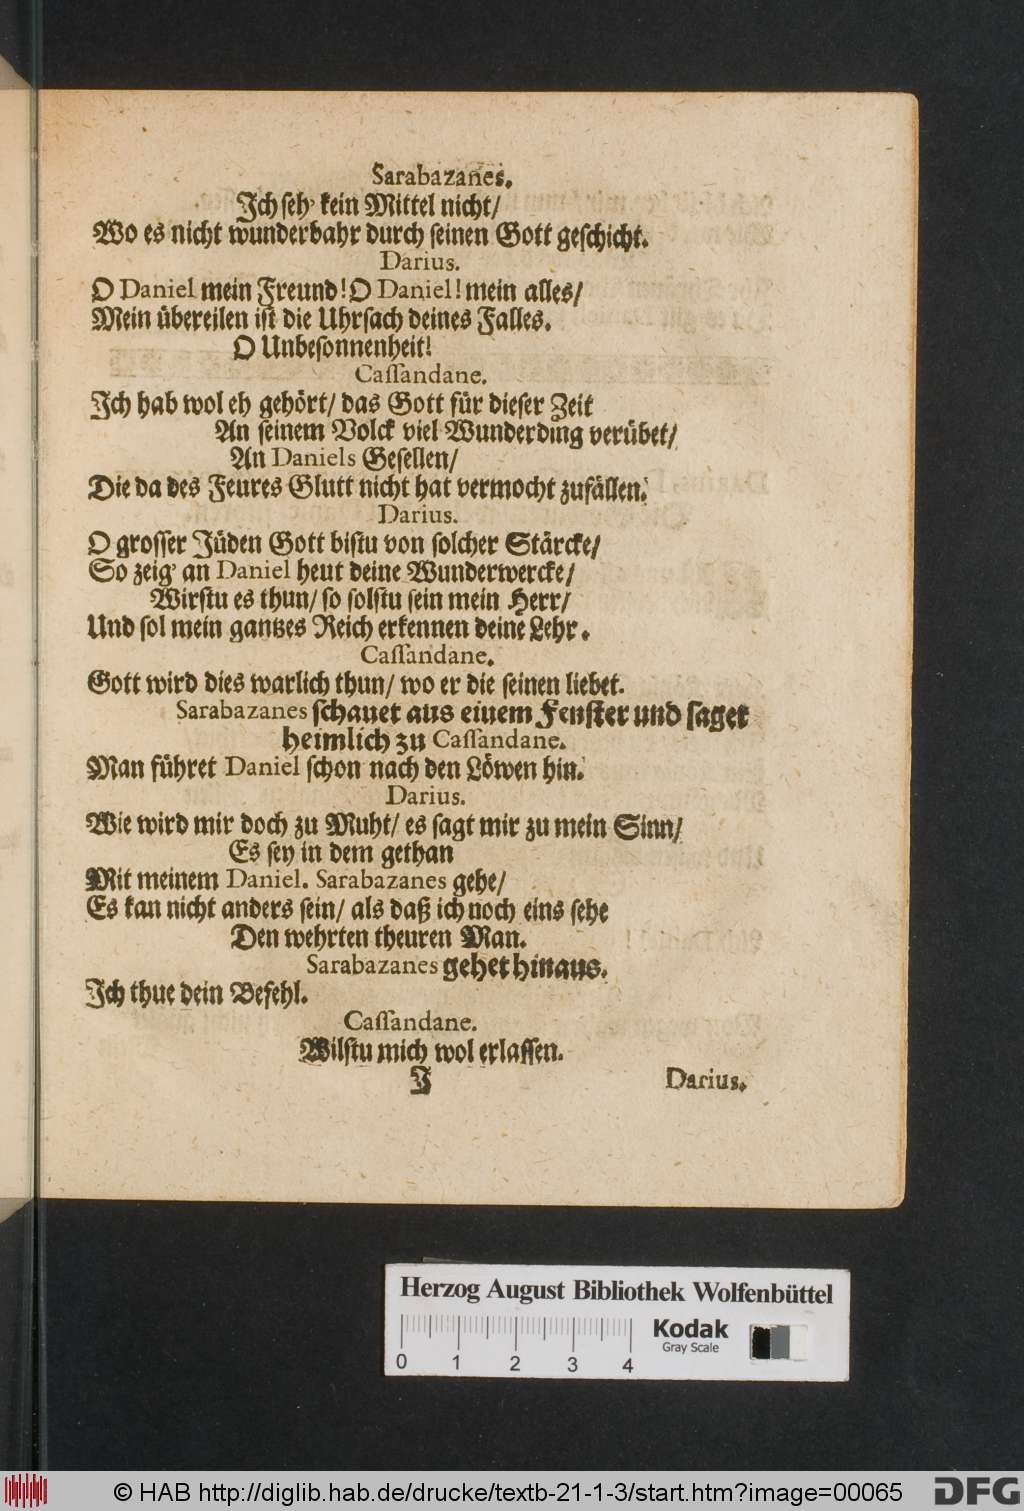 Sarabazanes.
Ich seh' kein Mittel nicht/
Wo es nicht wunderbahr durch seinen Gott geschicht.
Darius.
O Daniel mein Freund! O Daniel! mein alles/
Mein übereilen ist die Uhrsach deines Falles.
O Unbesonnenheit!
Cassandane.
Ich hab wol eh gehört/ das Gott für dieser Zeit
An seinem Volck viel Wunderding verübet/
An Daniels Gesellen/
Die da des Feures Glutt nicht hat vermocht zufällen.
Darius.
O grosser Jüden Gott bistu von solcher Stärcke/
So zeig' an Daniel heut deine Wunderwercke/
Wirstu es thun/ so solstu sein mein Herr/
Und sol mein gantzes Reich erkennen deine Lehr.
Cassandane.
Gott wird dies warlich thun/ wo er die seinen liebet.
Sarabazanes schauet aus einem Fenster und saget
heimlich zu Cassandane.
Man führet Daniel schon nach den Löwen hin.
Darius.
Wie wird mir doch zu Muht/ es sagt mir zu mein Sinn/
Es sey in dem gethan
Mit meinem Daniel. Sarabazanes gehe/
Es kan nicht anders sein/ als daß ich noch eins sehe
Den wehrten theuren Man.
Sarabazanes gehet hinaus.
Ich thue dein Befehl.
Cassandane.
Wilstu mich wol erlassen.
J Darius.
Herzog August Bibliothek Wolfenbüttel
Kodak
Gray Scale
0 1 2 3 4
© HAB http://diglib.hab.de/drucke/textb-21-1-3/start.htm?image=00065
DFG